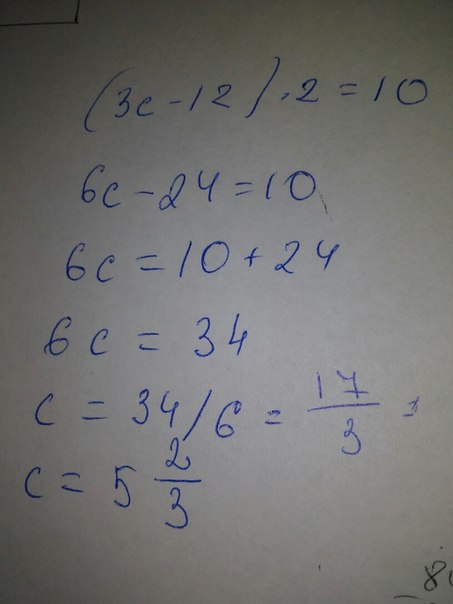 (3c - 12) · 2 = 10
6c - 24 = 10
6c = 10 + 24
6c = 34
c = 34/6 = 17/3 =
c = 5 2/3